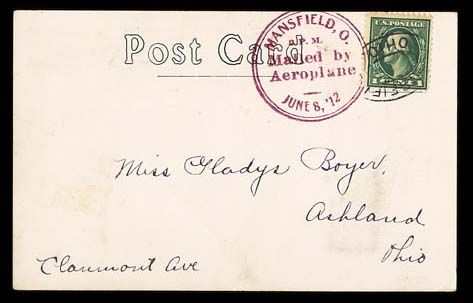 Post Card
MANSFIELD, O.
P. M.
Mailed by
Aeroplane
JUNE 8, '12
U.S. POSTAGE
OHIO
Miss Gladys Boyer,
Ashland
Ohio
Claremont Ave